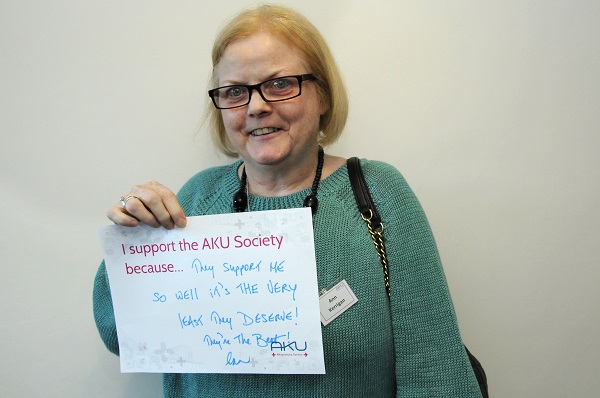 I support the AKU Society
because... They support ME
SO WELL it's THE VERY
least They DESERVE!
They're The Best!
Ann
AKU
Ann
Kerrigan